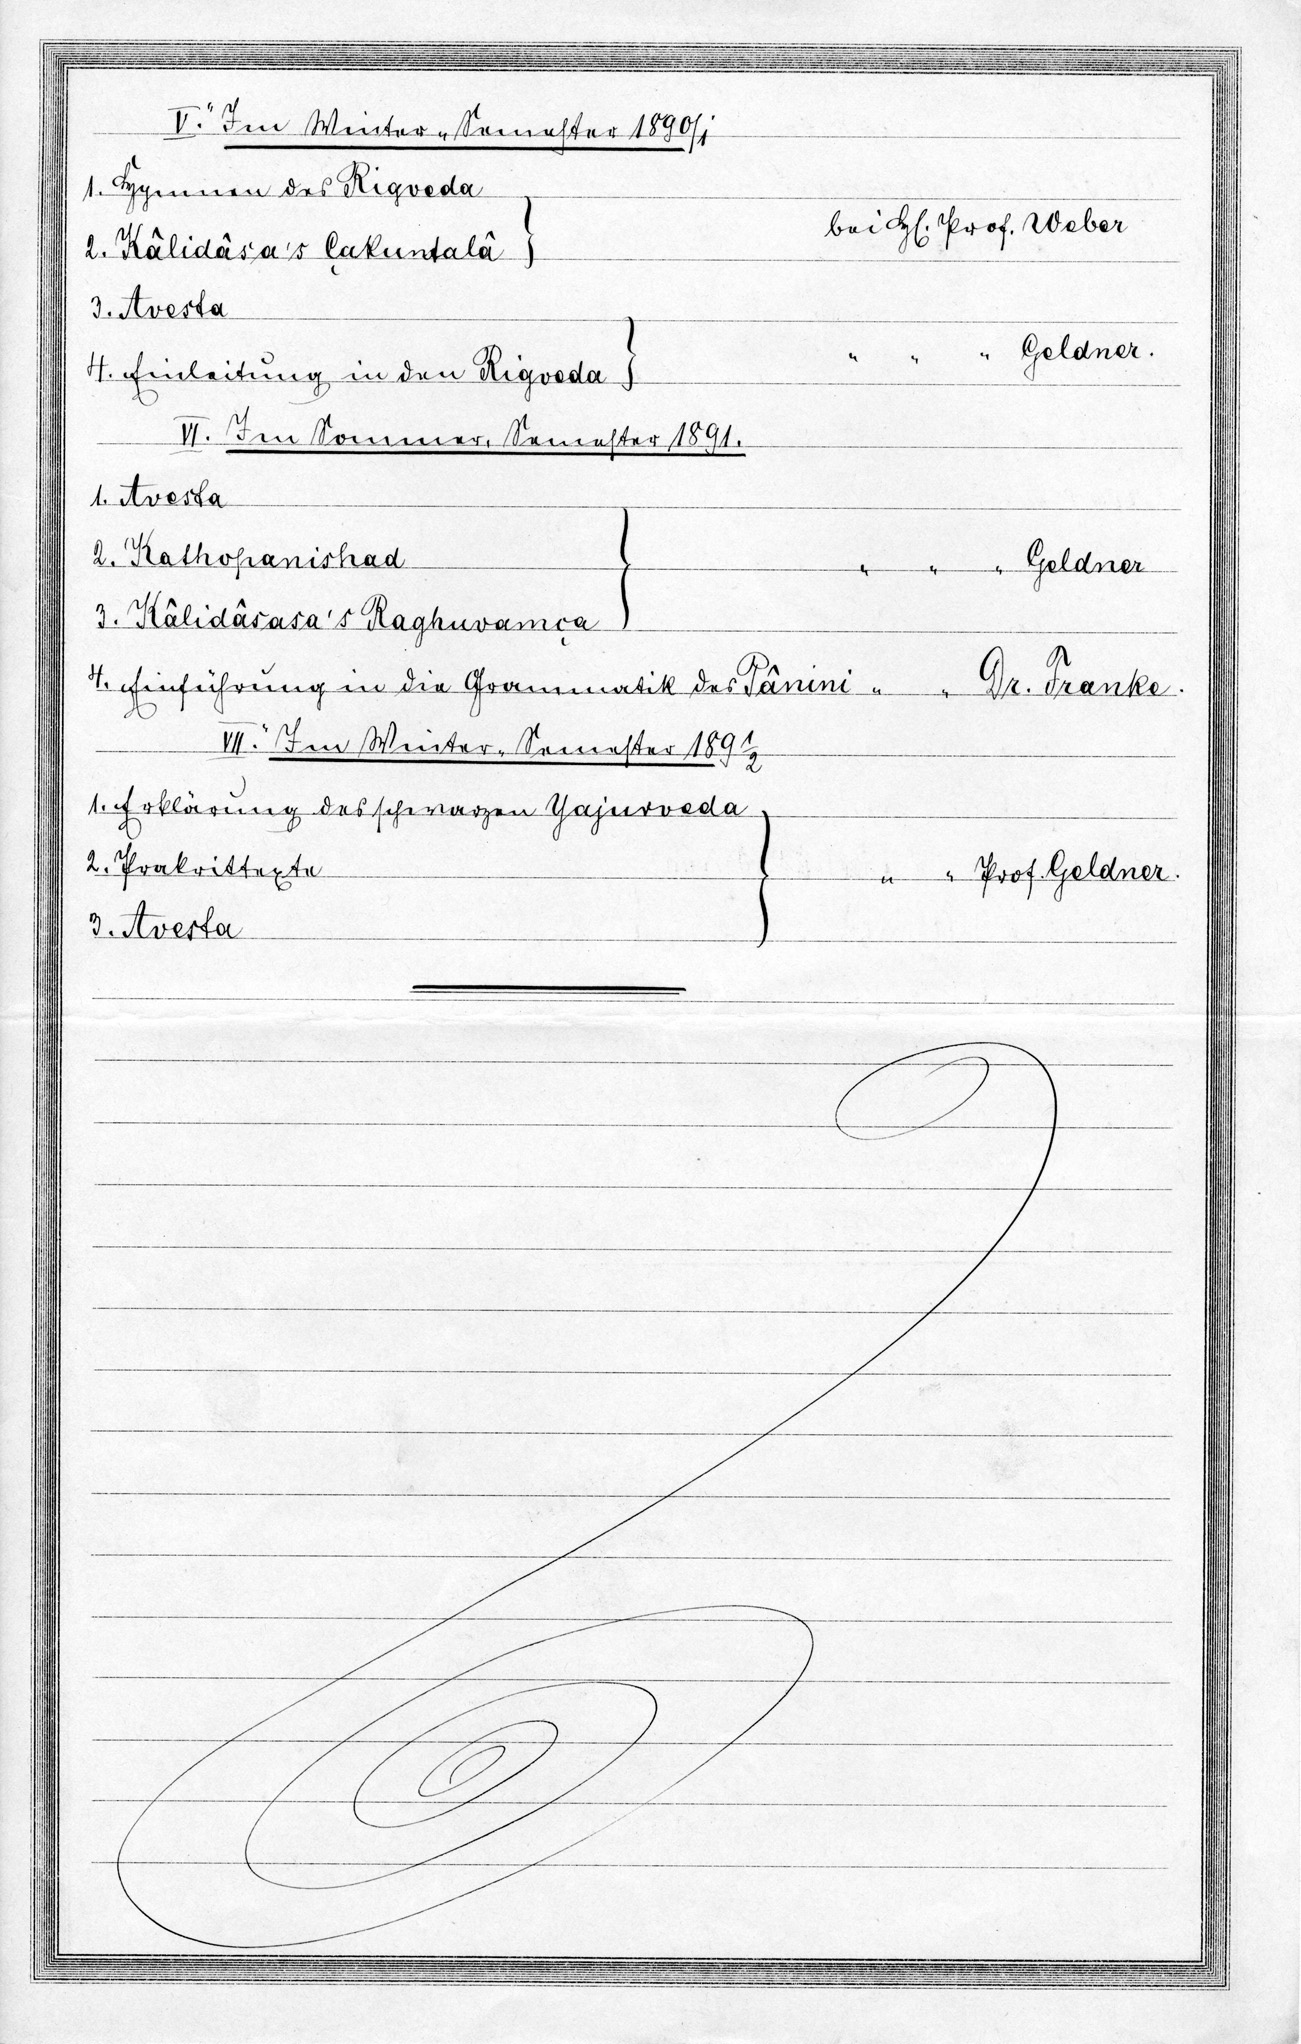 V." Im Winter-Semester 1890/1
1. Hymnen des Rigveda
bei H. Prof. Weber
2. Kâlidâsa's Çakuntalâ
3. Avesta
" " " Geldner.
4. Einleitung in den Rigveda
VI. Im Sommer-Semester 1891.
1. Avesta
2. Kathopanishad " " " Geldner
3. Kâlidâsasa's Raghuvamça
4. Einführung in die Grammatik des Pânini " " Dr. Franke.
VII." Im Winter-Semester 1891/2
1. Erklärung des schwarzen Yajurveda
2. Prakrittexte " " Prof. Geldner.
3. Avesta